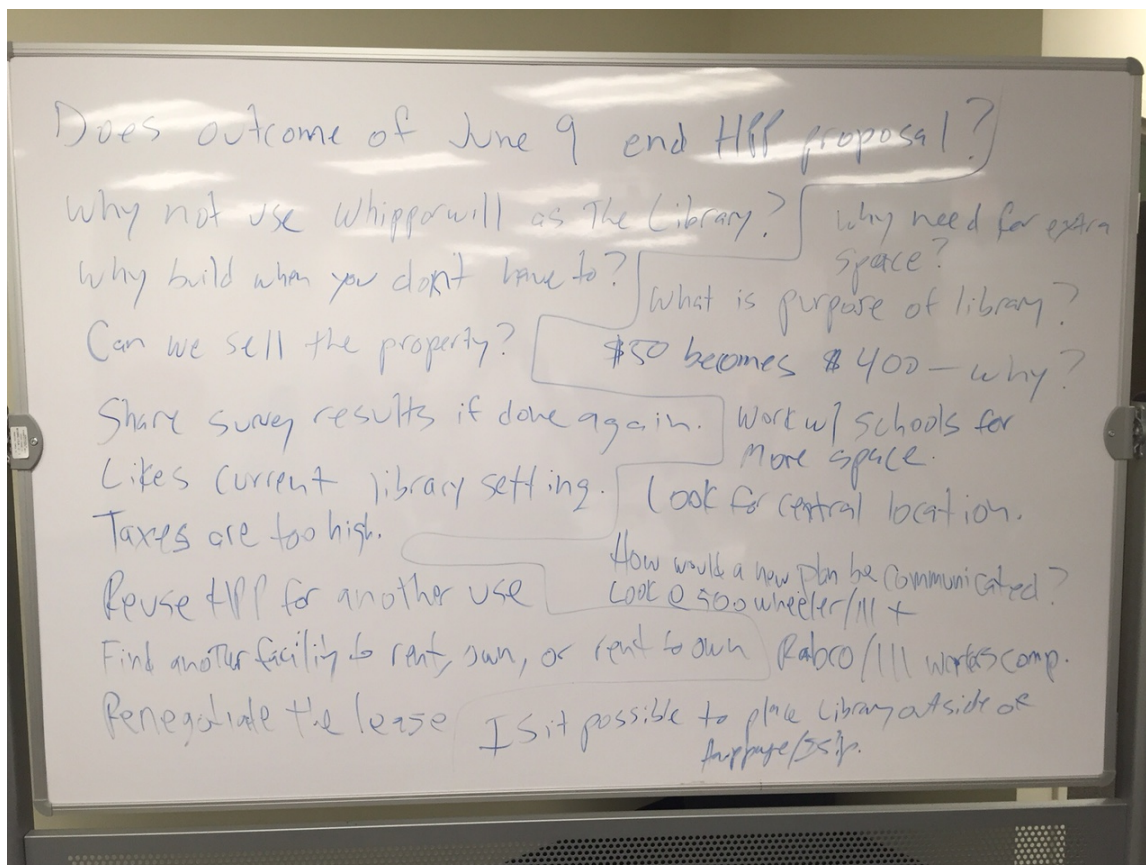 Does outcome of June 9 end HPP proposal?
Why not use Whipporwill as The Library?
Why build when you don't have to?
Can we sell the property?
Share survey results if done again.
Likes current library setting.
Taxes are too high.
Reuse HPP for another use
Find another facility to rent, own, or rent to own
Renegotiate the lease
Why need for extra
space?
What is purpose of library?
$50 becomes $400 – why?
Work w/ schools for
more space.
Look for central location.
How would a new plan be communicated?
Look @ 500 wheeler/111 +
Rabro/111 workers comp.
Is it possible to place Library outside of